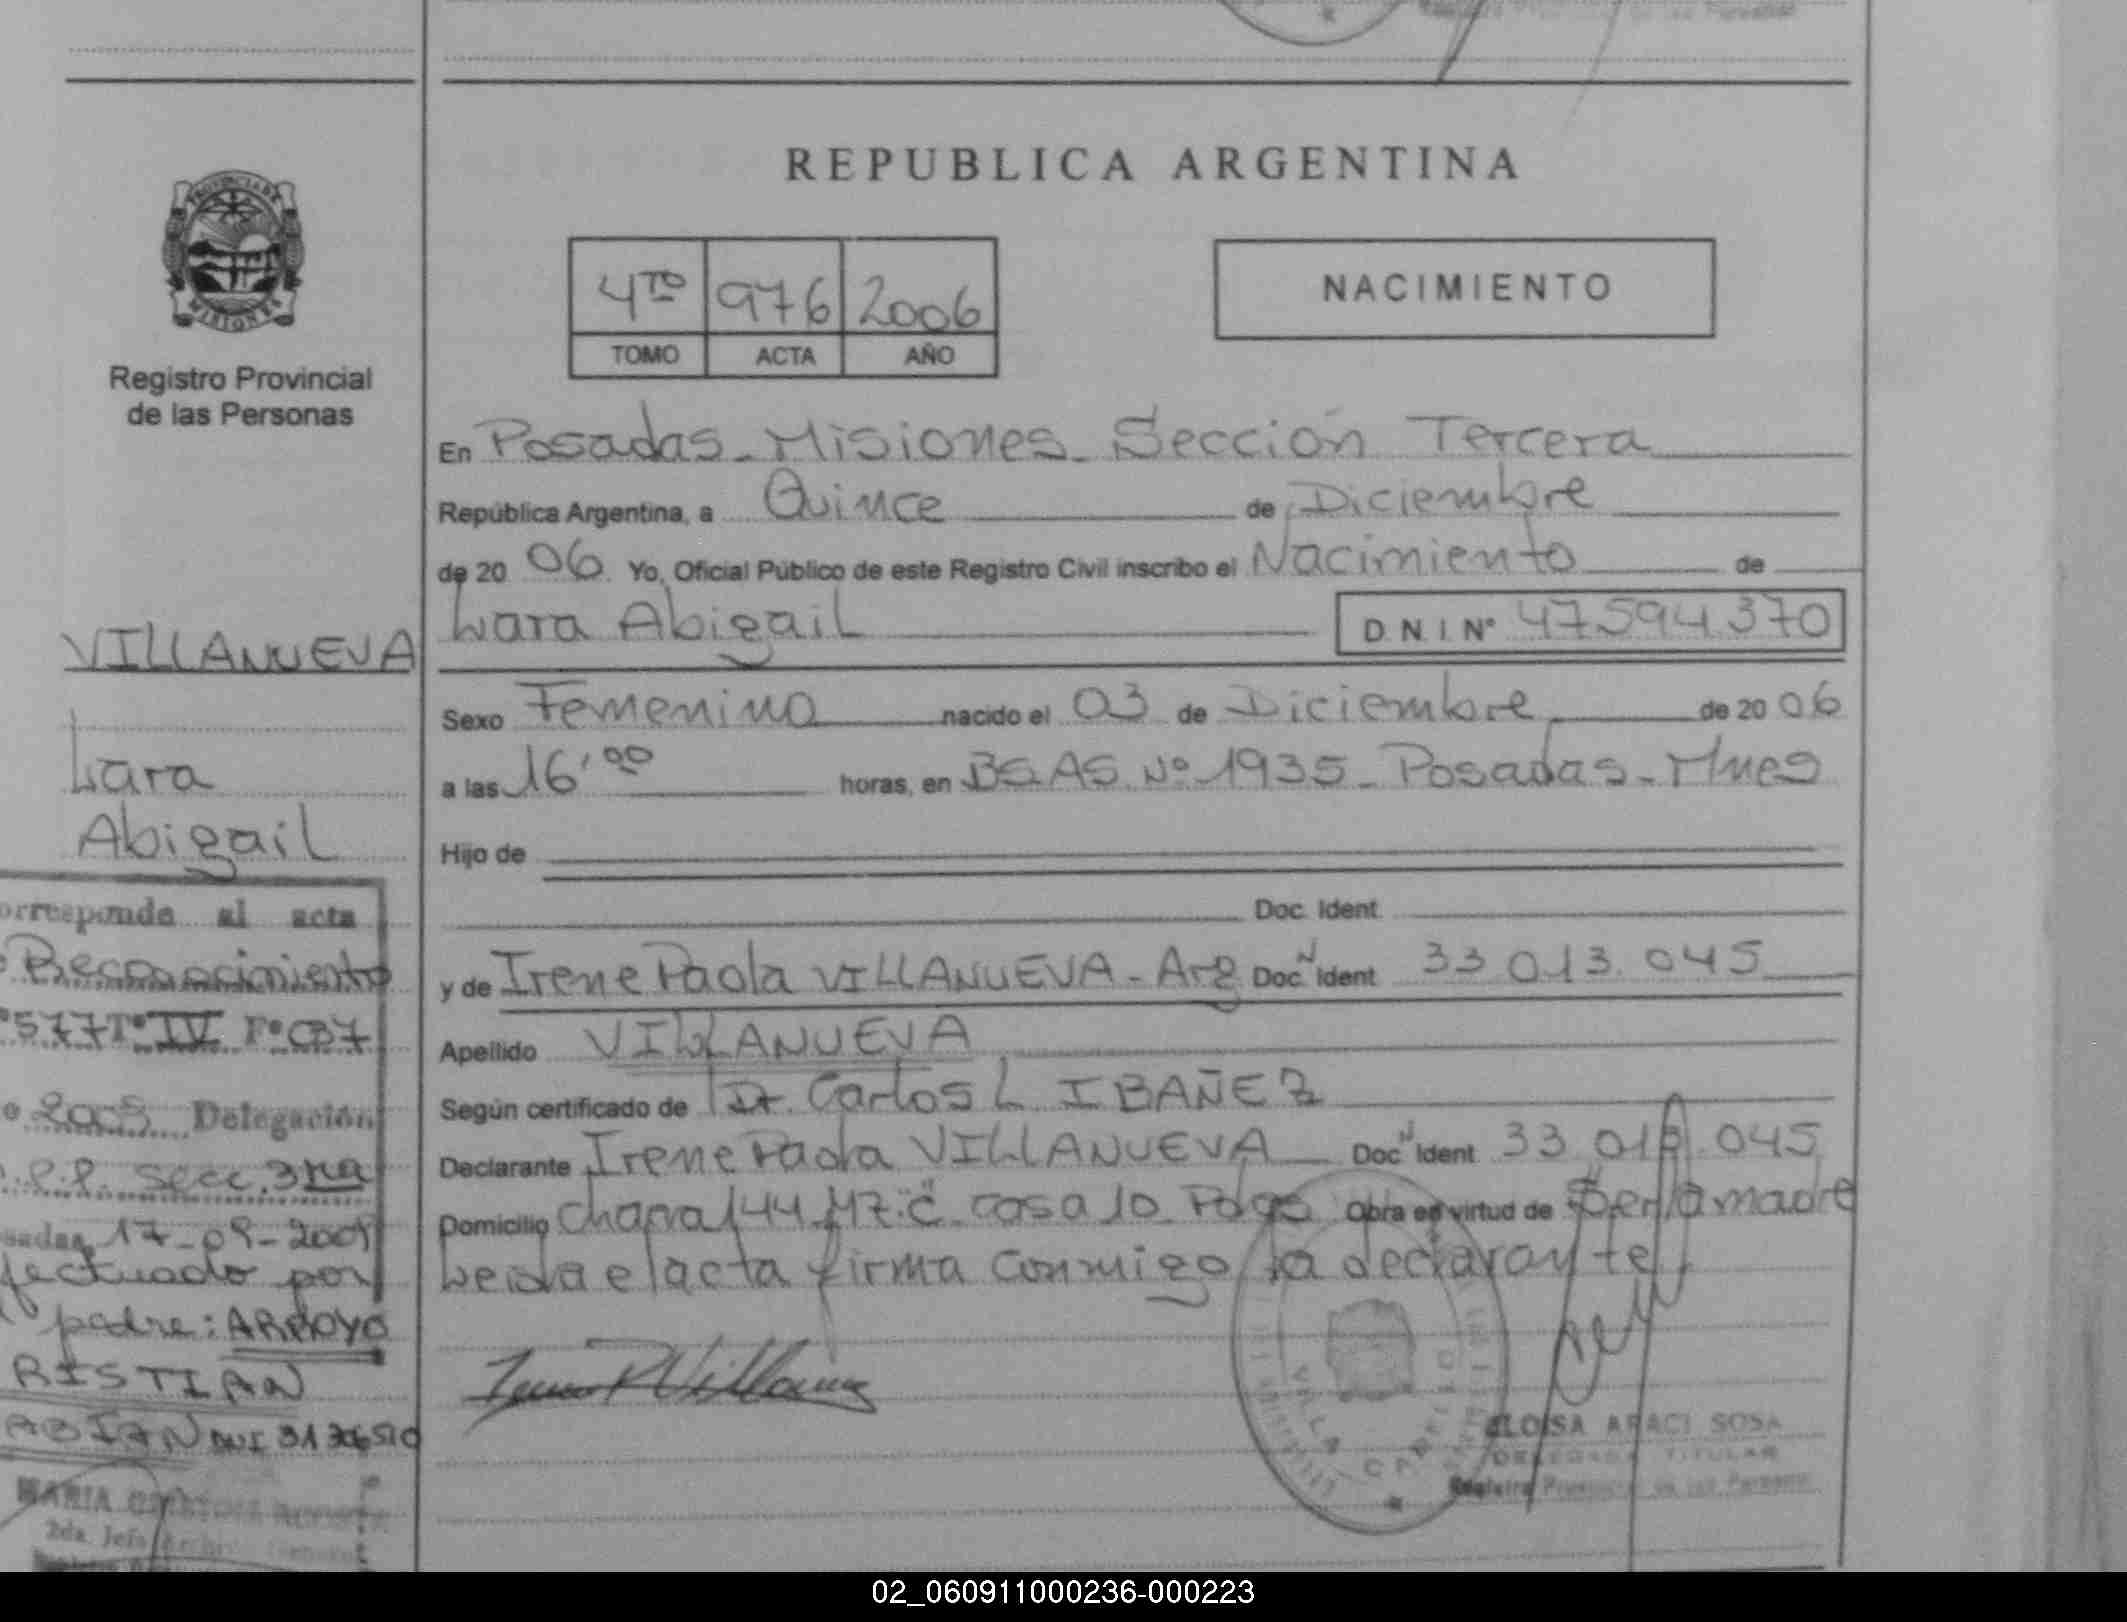 REPUBLICA ARGENTINA
PROVINCIA DE
MISIONES
Registro Provincial
de las Personas
4TO 976 2006
TOMO ACTA AÑO
NACIMIENTO
En Posadas - Misiones - Sección Tercera
República Argentina, a Quince de Diciembre
de 20 06 Yo, Oficial Público de este Registro Civil inscribo el Nacimiento de
Lara Abigail D.N.I. Nº 47.594.370
Sexo Femenino nacido el 03 de Diciembre de 20 06
a las 16'00 horas, en BS.AS. Nº 1935 - Posadas - Mnes
Hijo de
Doc. Ident.
y de Irene Paola VILLANUEVA - Arg Doc. Ident. 33.013.045
Apellido VILLANUEVA
Según certificado de Dr. Carlos L IBAÑEZ
Declarante Irene Paola VILLANUEVA Doc. Ident. 33.013.045
Domicilio Chacra 144 Mz. C casa 10 Pdas Obra en virtud de Ser la madre
Leida el acta firma conmigo la declarante
ELOISA ARACI SOSA
DELEGADA TITULAR
Registro Provincial de las Personas
VILLANUEVA
Lara
Abigail
orresponde al acta
Reconocimiento
577 Tº IV Fº
Delegación
secc. 3ra
sadas, 17-09-2009
fectuado por
padre: ARROYO
RISTIAN
ABIAN DNI
MARIA CRISTINA ACOSTA
2da. Jefe Archivo General
02_060911000236-000223